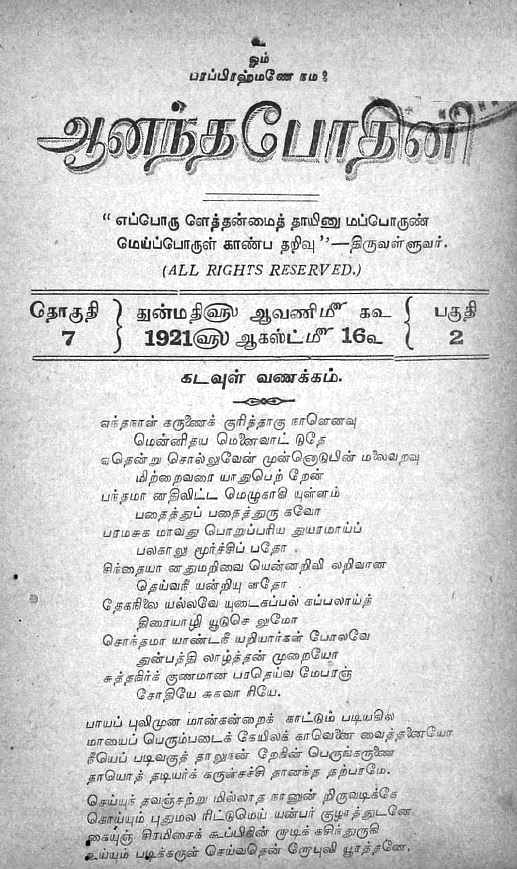 உ
ஓம்
பரப்பிரஹ்மணே நம:
ஆனந்தபோதினி
“எப்பொரு ளெத்தன்மைத் தாயினு மப்பொருண்
மெய்ப்பொருள் காண்ப தறிவு”—திருவள்ளுவர்.
(ALL RIGHTS RESERVED.)
தொகுதி 7
துன்மதி௵ ஆவணி௴ க௳
1921௵ ஆகஸ்ட்௴ 16௳
பகுதி 2
கடவுள் வணக்கம்.
எந்தநாள் கருணைக் குரித்தாகு நாளெனவு
மென்னிதய மெனைவாட் டுதே
ஏதென்று சொல்லுவேன் முன்னொடுபின் மலைவறவு
மிற்றைவரை யாதுபெற் றேன்
பந்தமா னதிலிட்ட மெழுகாகி யுள்ளம்
பதைத்துப் பதைத்துரு கவோ
பரமசுக மாவது பொறுப்பரிய துயரமாய்ப்
பலகாலு மூர்ச்சிப் பதோ
சிந்தையா னதுமறிவை யென்னறிவி லறிவான
தெய்வநீ யன்றியு ளதோ
தேகநிலை யல்லவே யுடைகப்பல் கப்பலாய்த்
திரையாழி யூடுசெ லுமோ
சொந்தமா யாண்டநீ யறியார்கள் போலவே
துன்பத்தி லாழ்த்தன் முறையோ
சுத்தநிர்க் குணமான பரதெய்வ மேபரஞ்
சோதியே சுகவா ரியே.
பாயப் புலிமுன மான்கன்றைக் காட்டும் படியகில
மாயைப் பெரும்படைக் கேயிலக் காவெனை வைத்தனையோ
நீயெப் படிவகுத் தாலுநன் றேநின் பெருங்கருணை
தாயொத் தடியர்க் கருள்சச்சி தானந்த தற்பரமே.
செய்யுந் தவஞ்சற்று மில்லாத நானுன் றிருவடிக்கே
கொய்யும் புதுமல ரிட்டுமெய் யன்பர் குழாத்துடனே
கையுஞ் சிரமிசைக் கூப்பிநின் றாடிக் கசிந்துருகி
உய்யும் படிக்கருள் செய்வதென் றோபுலி யூரத்தனே.